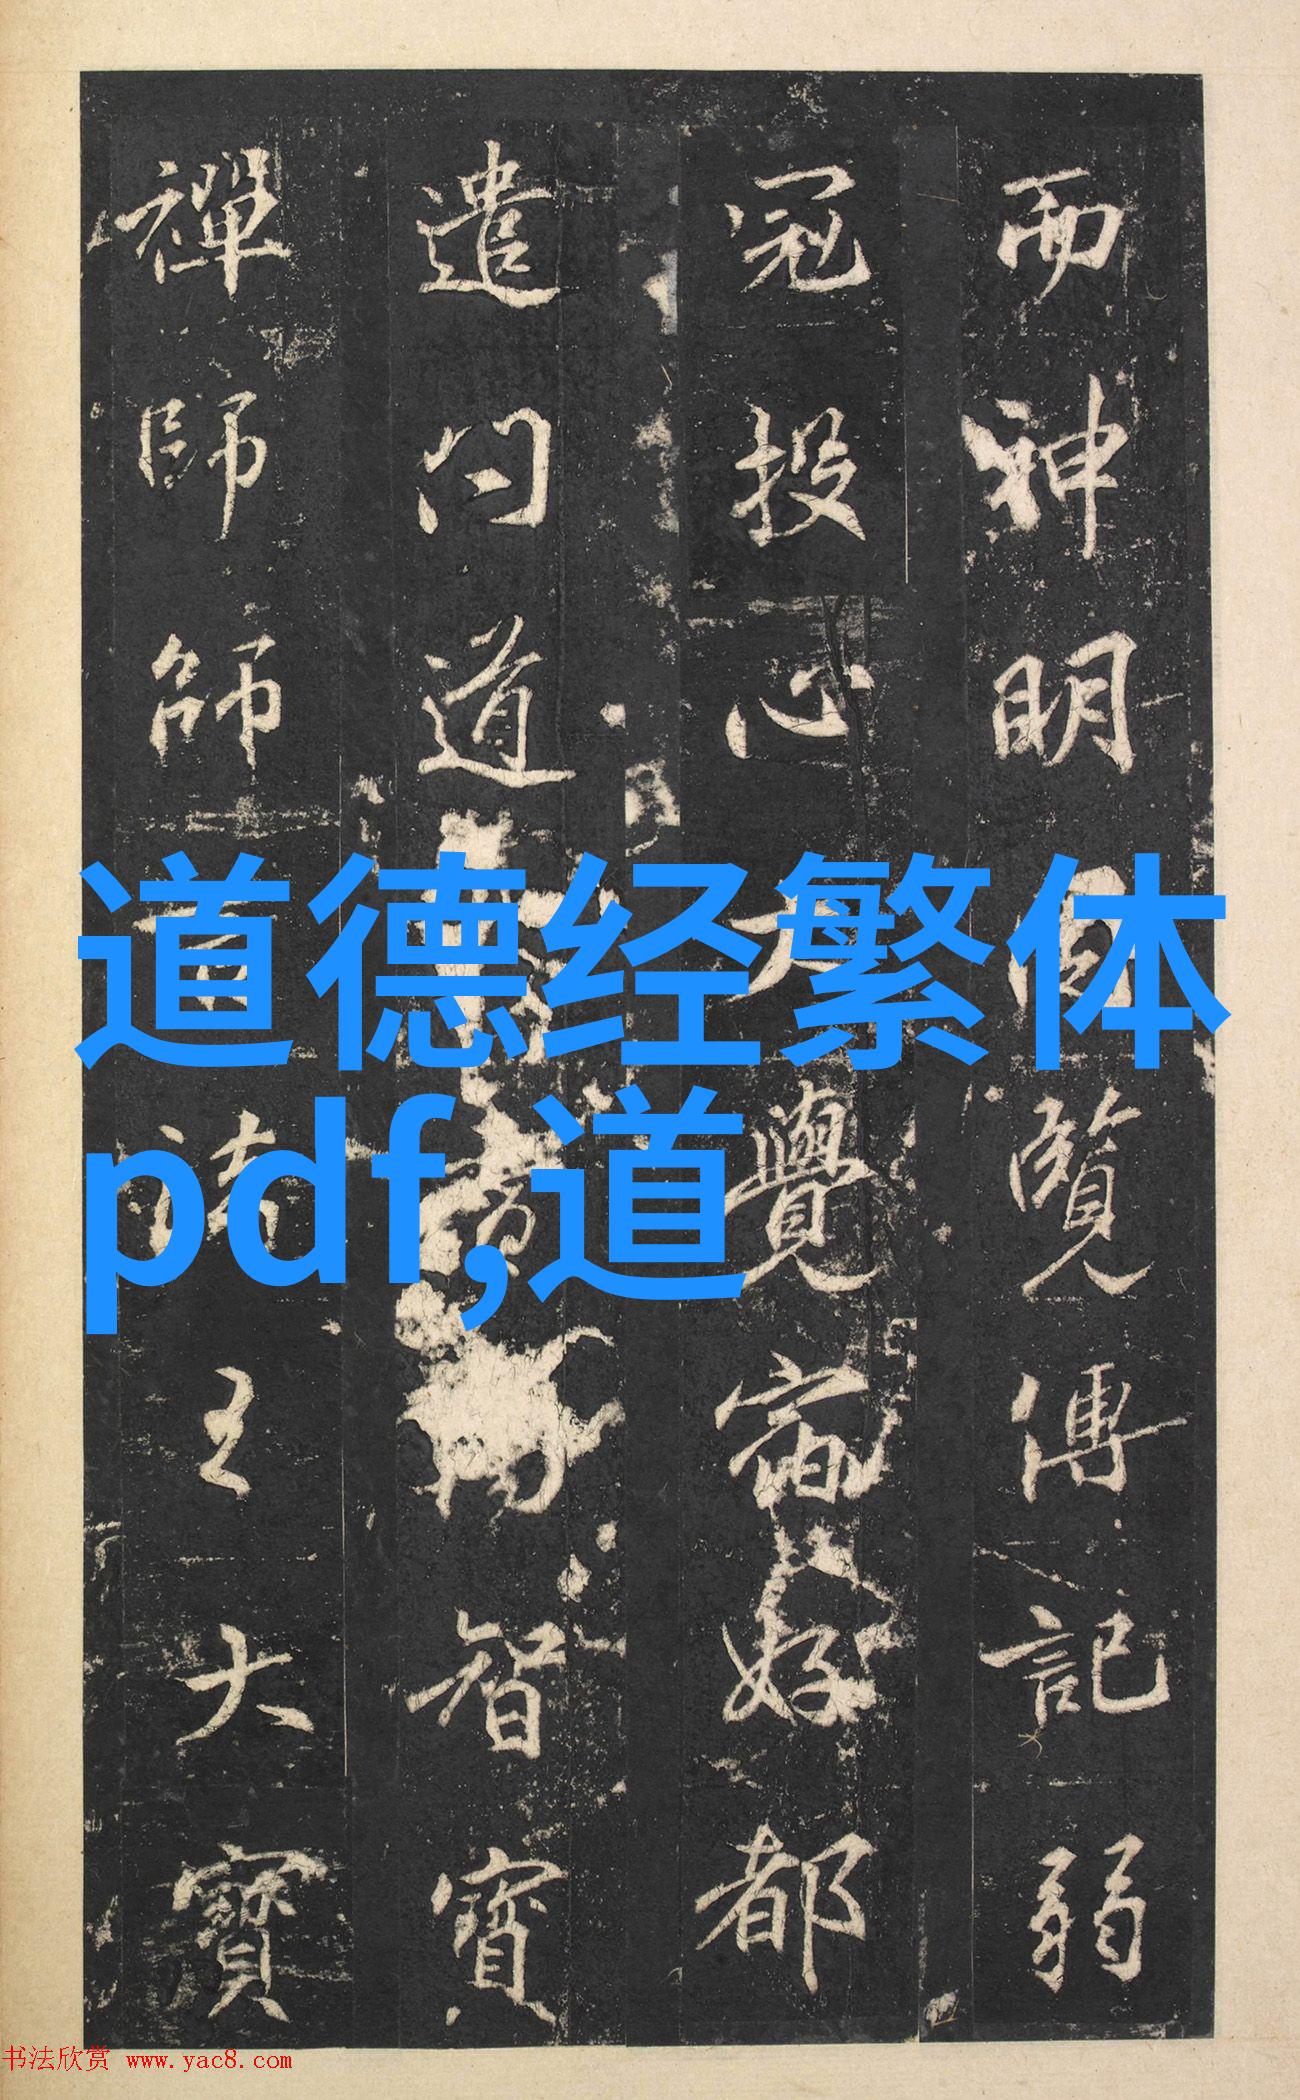 而神明覽傳記弱
冠投心覺好都
遣問道智寶
禪師師法王大寶
道德经繁体
pdf,道
书法欣赏 www.yac8.com